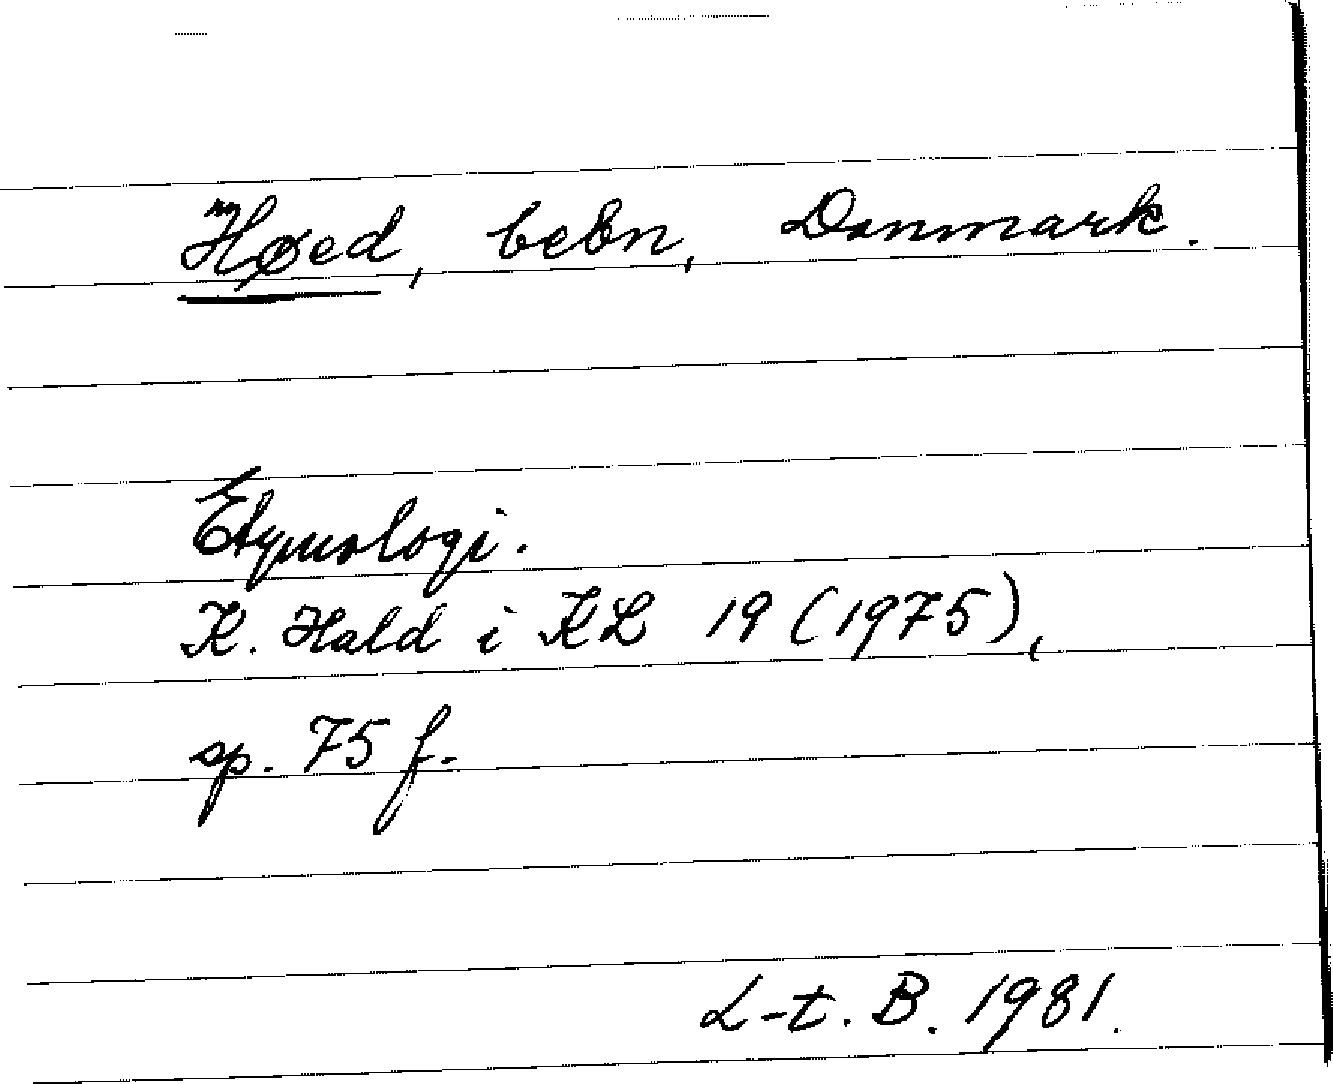 Høed, bebn, Danmark.
Etymologi.
K. Hald i KL 19 (1975),
sp. 75 f.
L-t. B. 1981.